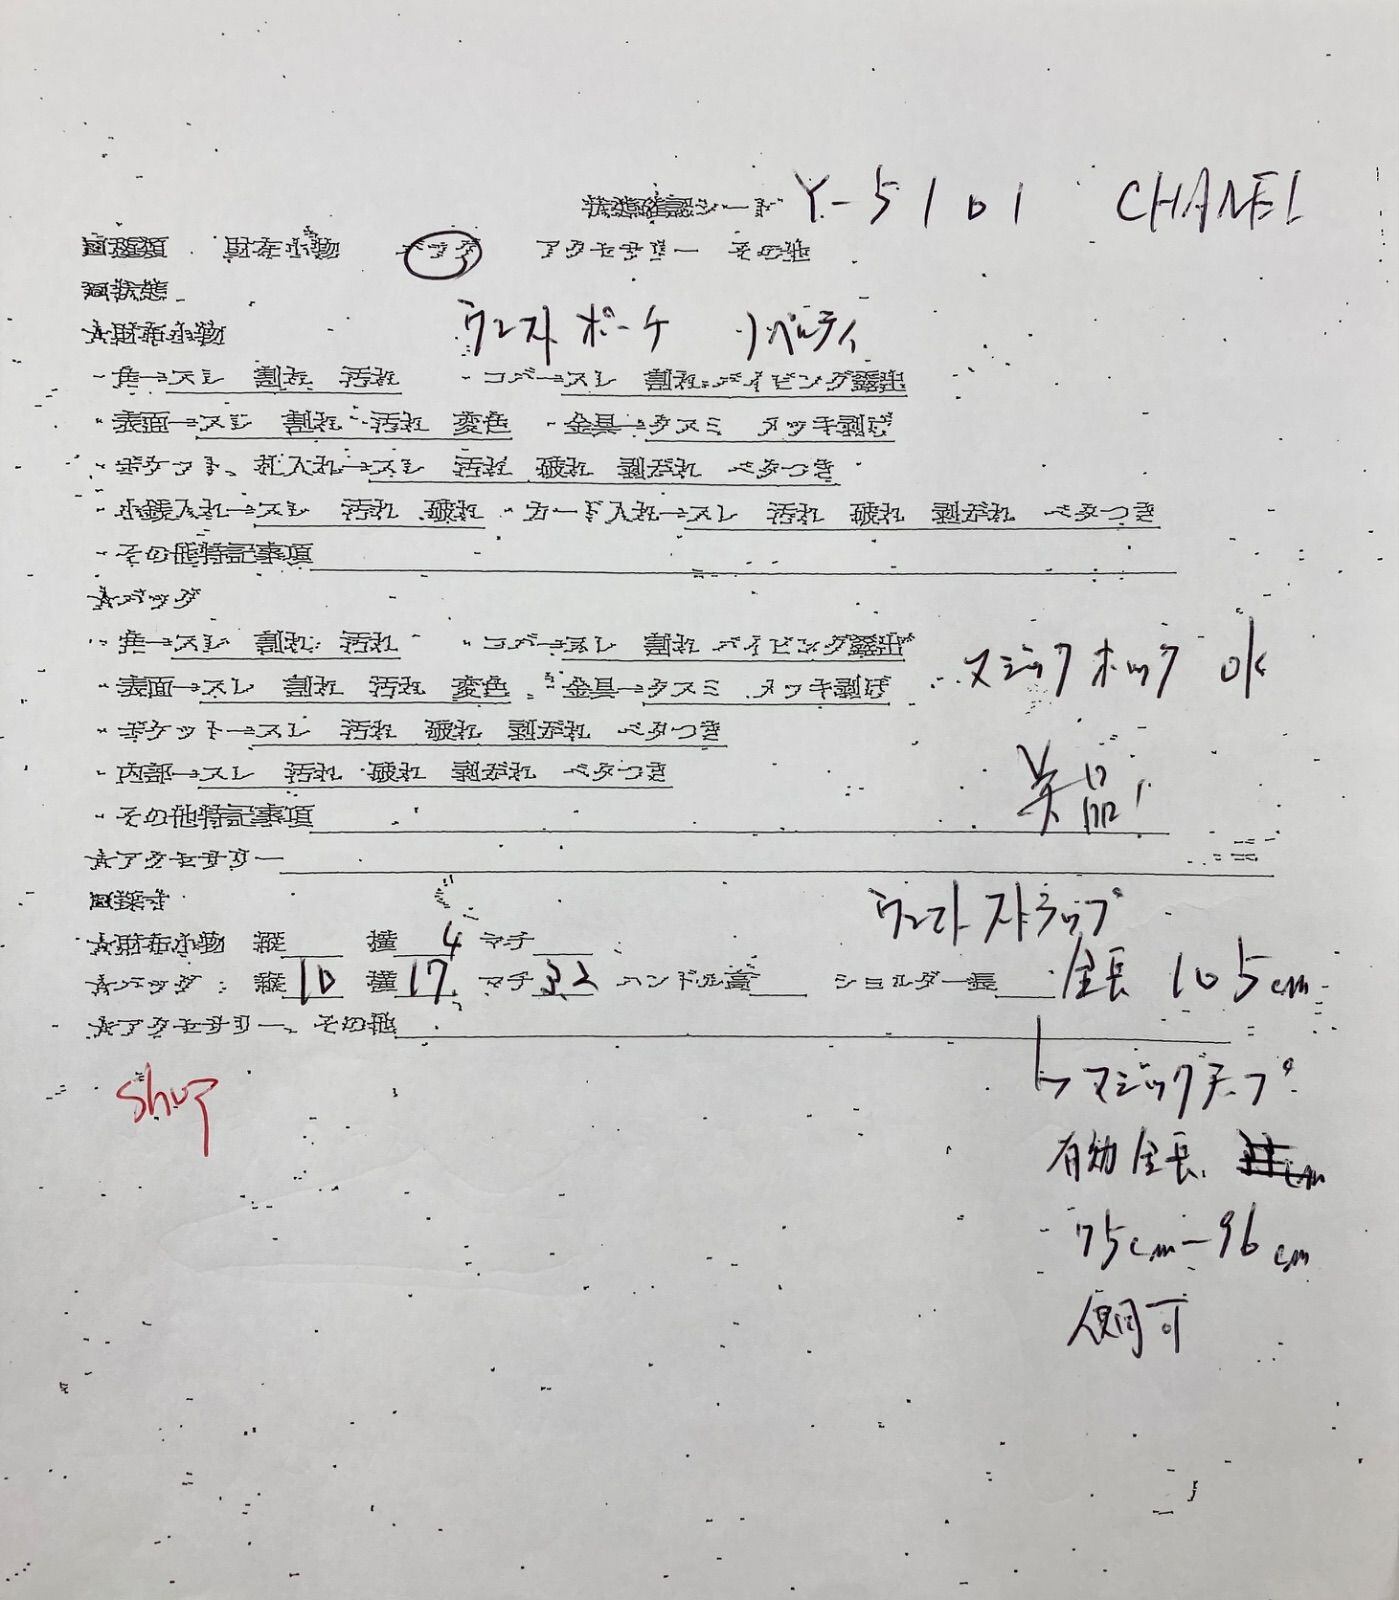 状態確認シート Y-5101 CHANEL
■種類 財布小物 バッグ アクセサリー その他
■状態
★財布小物 ウエストポーチ ノベルティ
・角→スレ 割れ 汚れ ・コバ→スレ 割れ パイピング露出
・表面→スレ 割れ 汚れ 変色 ・金具→クスミ メッキ剥げ
・ポケット、札入れ→スレ 汚れ 破れ 剥がれ ベタつき
・小銭入れ→スレ 汚れ 破れ ・カード入れ→スレ 汚れ 破れ 剥がれ ベタつき
・その他特記事項
★バッグ
・角→スレ 割れ 汚れ ・コバ→スレ 割れ パイピング露出 マジック ホック ok
・表面→スレ 割れ 汚れ 変色 ・金具→クスミ メッキ剥げ
・ポケット→スレ 汚れ 破れ 剥がれ ベタつき
・内部→スレ 汚れ 破れ 剥がれ ベタつき 美品!
・その他特記事項
★アクセサリー
■採寸 ウエスト ストラップ
★財布小物 縦 横 4 マチ
★バッグ:縦 10 横 17 マチ ハンドル高 ショルダー長 全長 105cm
★アクセサリー、その他
↳ マジックテープ
shop
有効全長 cm
75cm-96cm
使用可